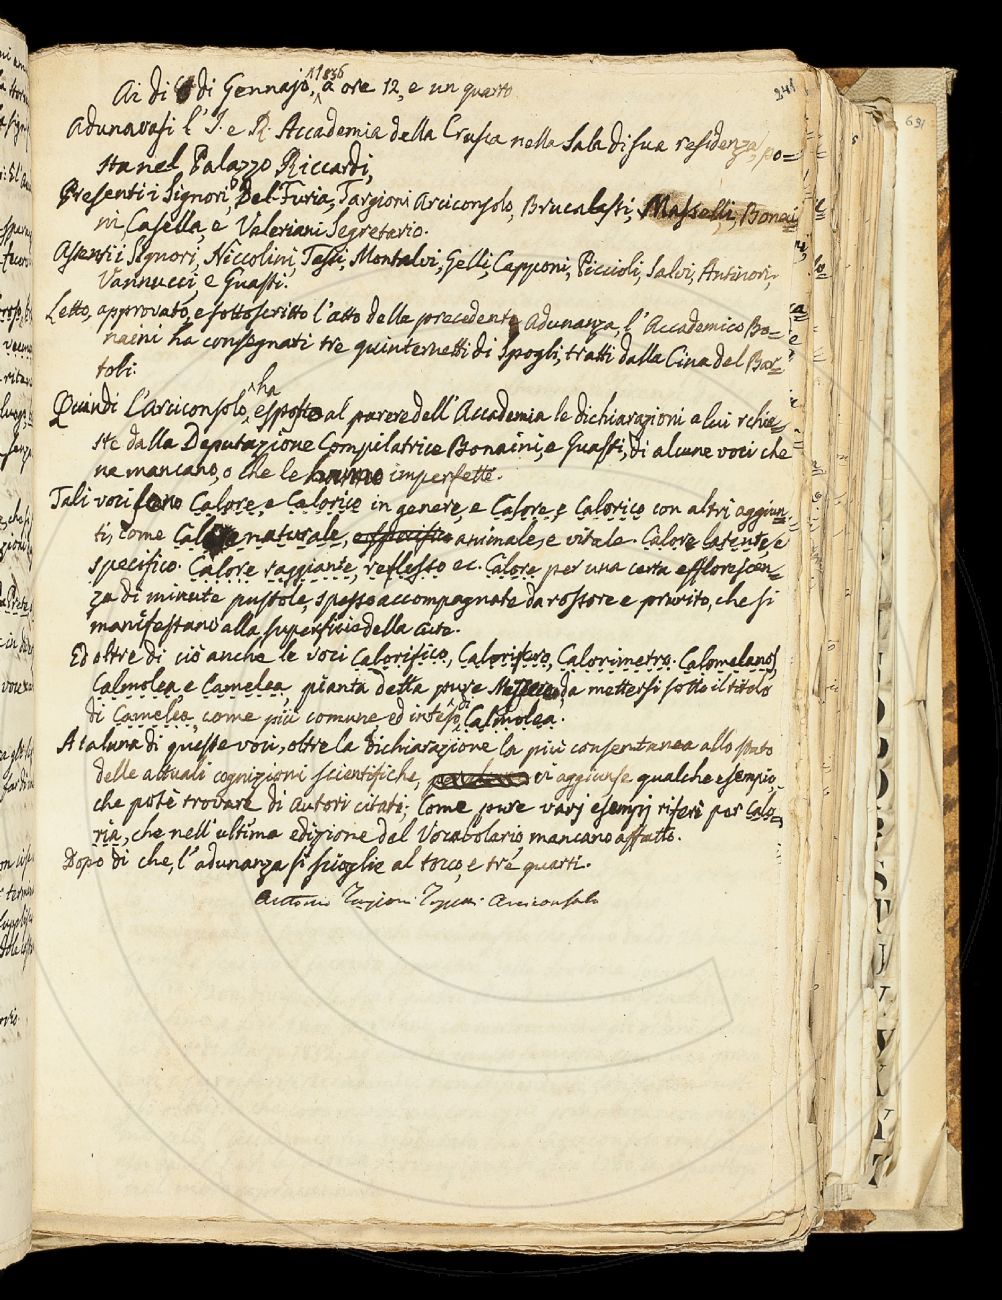 241
691
Ai dì di Gennajo, 1836 a ore 12, e un quarto
Adunavasi l'I. e R. Accademia della Crusca nella Sala di sua residenza, po=
sta nel Palazzo Riccardi,
Presenti i Signori Del Furia, Targioni Arciconsolo, Brucalassi, Masselli, Bonai
ni, Casella, e Valeriani Segretario.
Assenti i Signori, Niccolini, Tassi, Montalvi, Gelli, Capponi, Piccioli, Salvi, Antinori,
Vannucci, e Guasti.
Letto, approvato, e sottoscritto l'atto della precedente Adunanza, l'Accademico Bo=
naini ha consegnati tre quinternetti di Spogli, tratti dalla Cina del Bar=
toli.
Quindi l'Arciconsolo, ha esposto al parere dell'Accademia le dichiarazioni a lui richie=
ste dalla Deputazione Compilatrice Bonaini, e Guasti, di alcune voci che
ne mancano, o che le hanno imperfette.
Tali voci sono Calore, e Calorico in genere, e Calore, e Calorico con altri aggiun=
ti, come Calore naturale, animale, e vitale. Calore latente, e
specifico. Calore raggiante, reflesso ec. Calore per una certa efflorescen=
za di minute pustole, spesso accompagnate da rossore e prurito, che si
manifestano alla superficie della cute.
Ed oltre di ciò anche le voci Calorifico, Calorifero, Calorimetro. Calomelanos,
Calmolea, e Camelea, pianta detta pure Mezereo, da mettersi sotto il titolo
di Camelea, come più comune ed inteso, di Calmolea.
A taluna di queste voci, oltre la dichiarazione la più consentanea allo stato
delle attuali cognizioni scientifiche, vi aggiunse qualche esempio,
che potè trovare di autori citati; Come pure varj esempj riferì per Calo=
ria, che nell'ultima edizione del Vocabolario, mancano affatto.
Dopo di che, l'adunanza si scioglie al tocco, e tre quarti.
Antonio Targioni Tozzetti Arciconsolo